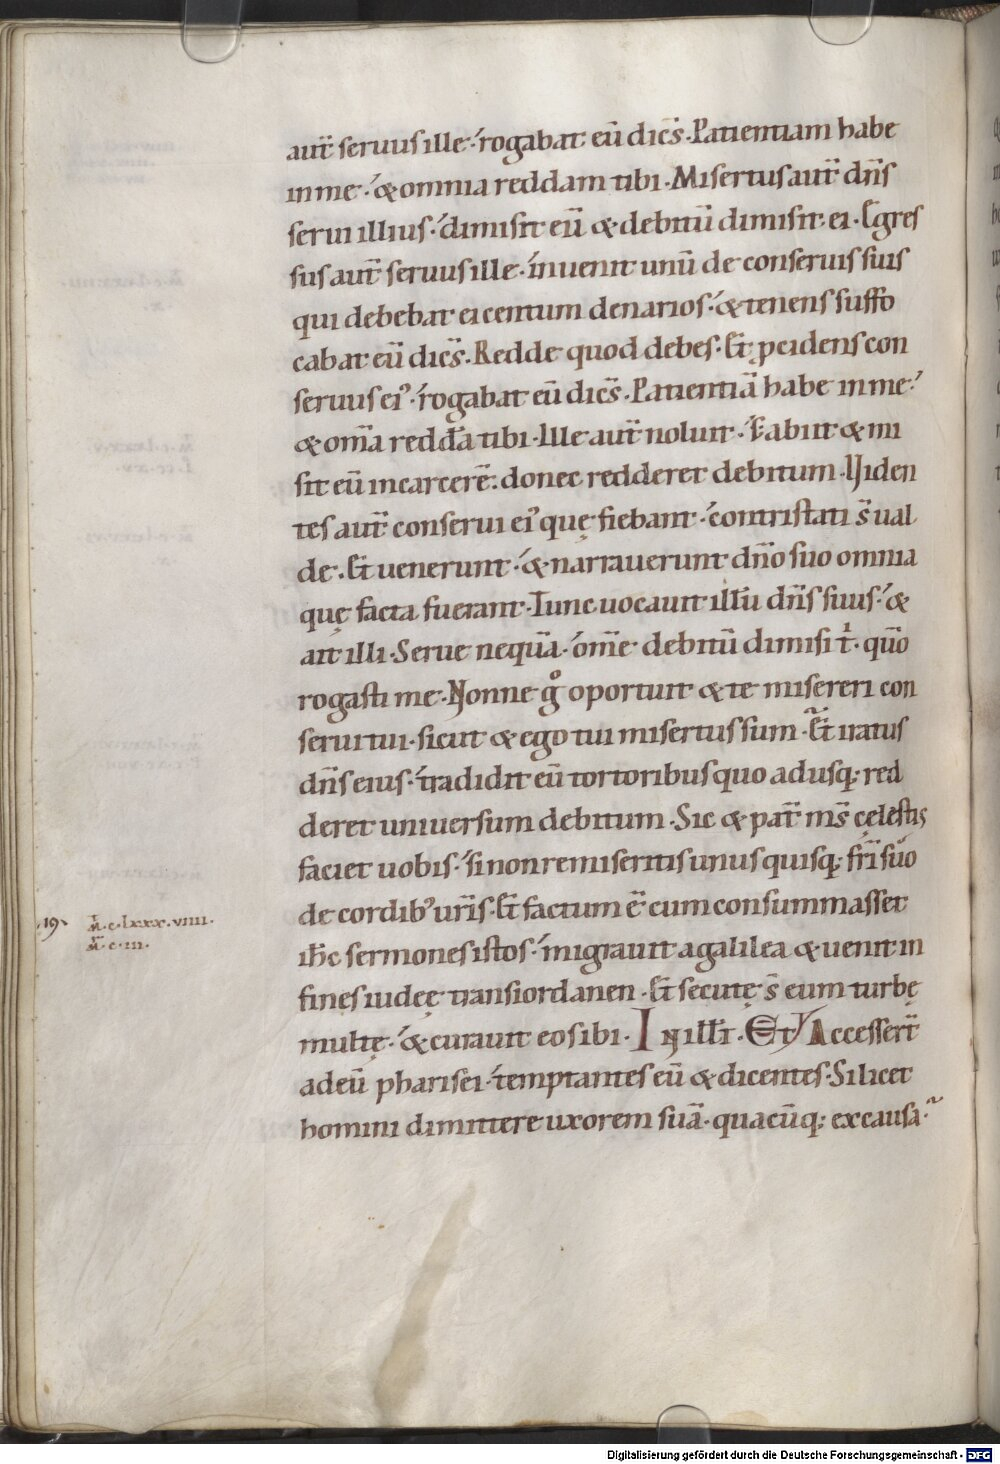 aut̄ seruus ille· rogabat eū dicēs· Patientiam habe
in me· & omnia reddam tibi· Misertus aut̄ dn̄s
serui illius· dimisit eū & debitū dimisit ei· Egres
sus aut̄ seruus ille· inuenit unū de conseruis suis
qui debebat ei centum denarios· & tenens suffo
cabat eū dicēs· Redde quod debes· Et p̱cidens con
seruus ei᾽· rogabat eū dicēs· Patientiā habe in me·
& om̄a reddā tibi· Ille aut̄ noluit· S; abiit & mi
sit eū in carcerē· donec redderet debitum· Uiden
tes aut̄ conserui ei᾽ quę fiebant· contristati s̄ ual
de· Et uenerunt· & narrauerunt dn̄o suo omnia
quę facta fuerant· Tunc uocauit illū dn̄s suus· &
ait illi· Serue nequā· om̄e debitū dimisi t̄· quō
rogasti me· Nonne gͦ oportuit & te misereri con
serui tui· sicut & ego tui misertus sum· Et iratus
dn̄s eius· tradidit eū tortoribus quo adusq; red
deret uniuersum debitum· Sic & pat̄ ms̄ cęlestis
faciet uobis· si non remiseritis unusquisq; fr̄i suo
de cordib᾽ ur̄is· Et factum ē cum consummasset
ih̄c sermones istos· migrauit a galilea & uenit in
finęs iudęę trans iordanen· Et secutę s̄ eum turbę
multę· & curauit eos ibi· IN ill̄r· Et Accesser̄t
ad eū pharisei· temptantes eū & dicentes· Si licet
homini dimittere uxorem suā· quacūq; ex causa·
19 M̄· c· lxxx· viiii·
M̄· c· iii·
Digitalisierung gefördert durch die Deutsche Forschungsgemeinschaft - DFG